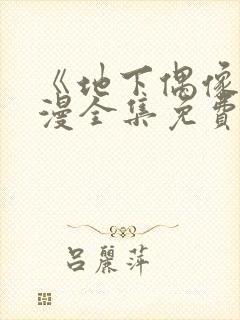 《地下偶像
漫全集免費
呂麗萍